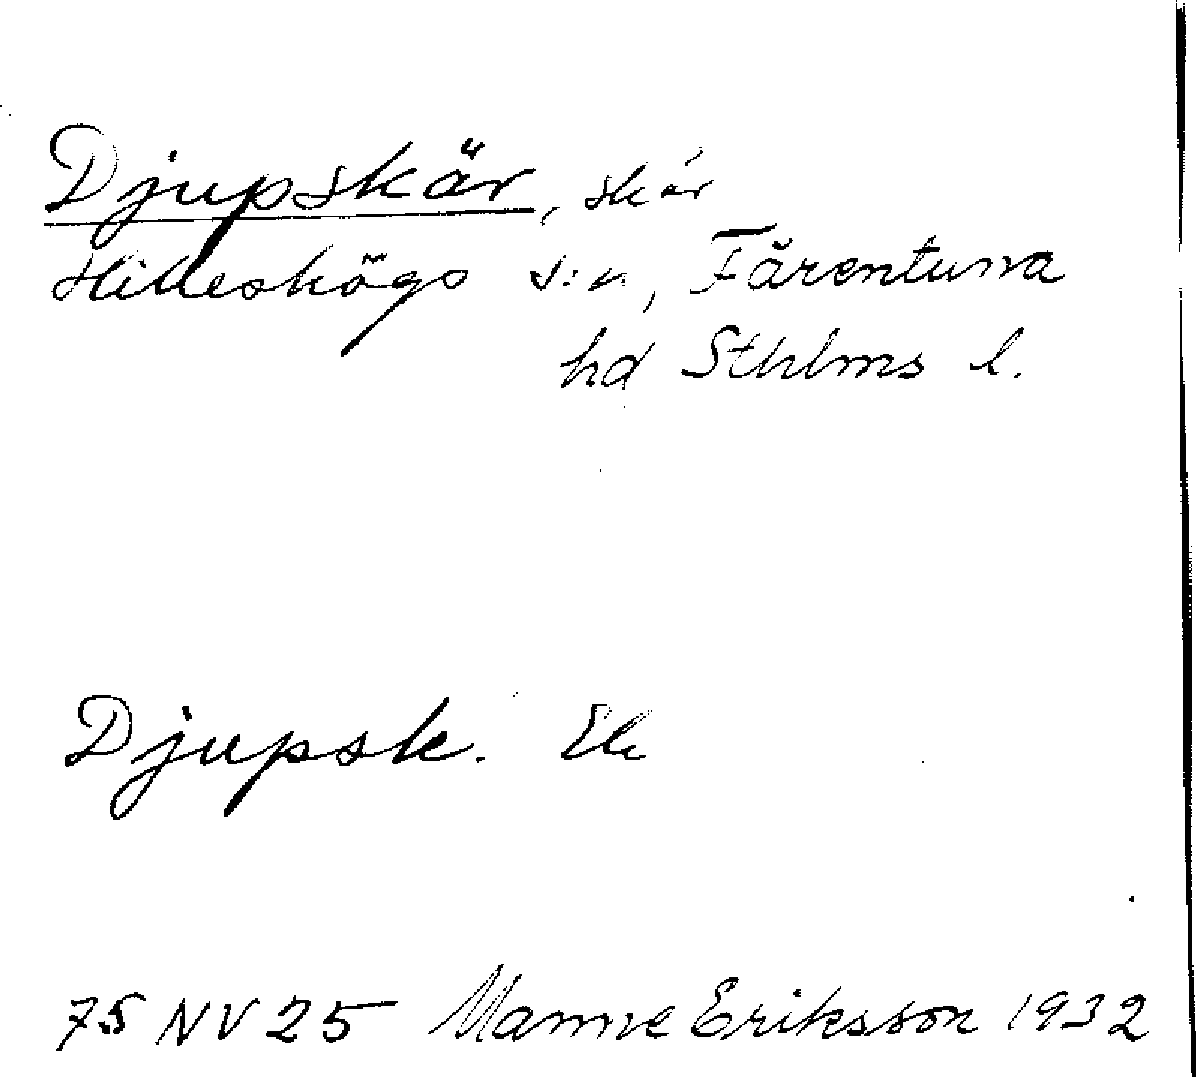 Djupskär, skär
Hilleshögs s:n, Färentuna
hd Sthlms l.
Djupsk. Ek
75 NV 25 Manne Eriksson 1932